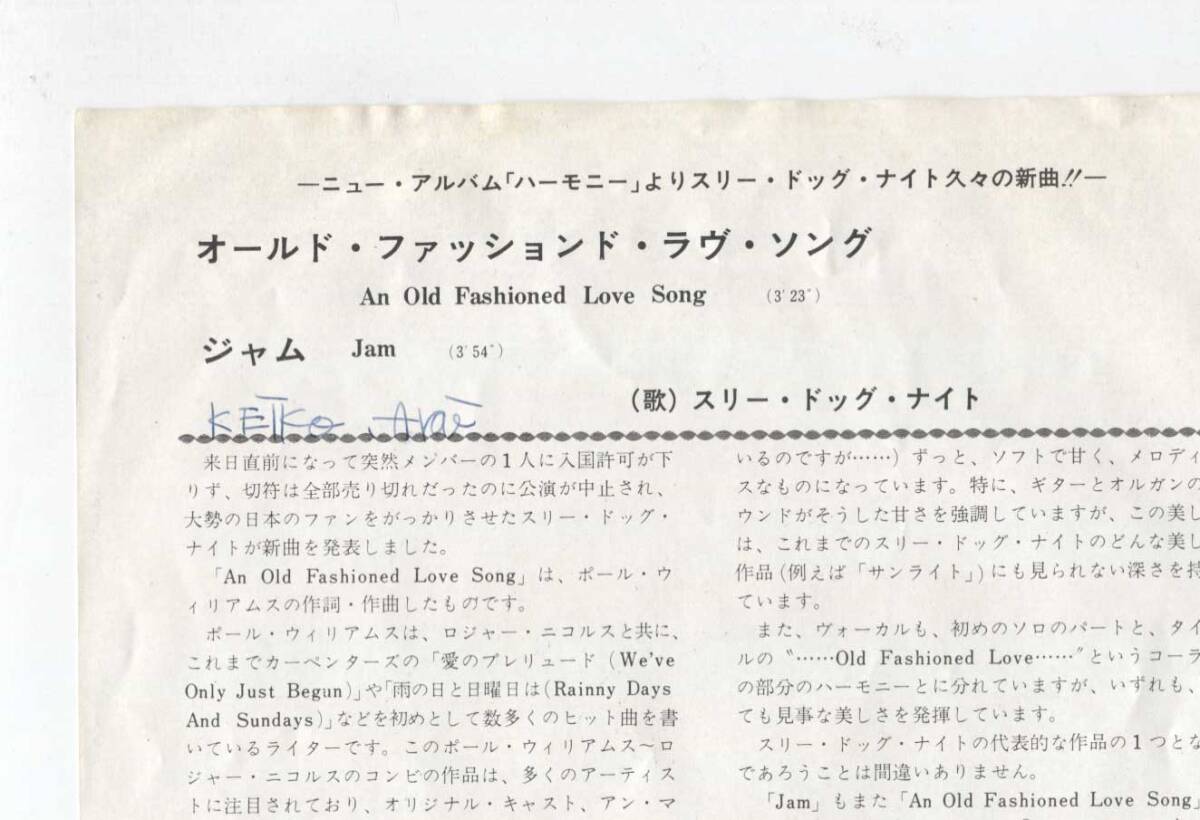 ―ニュー・アルバム「ハーモニー」よりスリー・ドッグ・ナイト久々の新曲!!―
オールド・ファッションド・ラヴ・ソング
An Old Fashioned Love Song (3'23")
ジャム Jam (3'54")
(歌) スリー・ドッグ・ナイト
KEIKO Arai
来日直前になって突然メンバーの1人に入国許可が下
りず、切符は全部売り切れだったのに公演が中止され、
大勢の日本のファンをがっかりさせたスリー・ドッグ・
ナイトが新曲を発表しました。
「An Old Fashioned Love Song」は、ポール・ウ
ィリアムスの作詞・作曲したものです。
ポール・ウィリアムスは、ロジャー・ニコルスと共に、
これまでカーペンターズの「愛のプレリュード (We've
Only Just Begun)」や「雨の日と日曜日は(Rainny Days
And Sundays)」などを初めとして数多くのヒット曲を書
いているライターです。このポール・ウィリアムス〜ロ
ジャー・ニコルスのコンビの作品は、多くのアーティス
トに注目されており、オリジナル・キャスト、アン・マ
いるのですが……) ずっと、ソフトで甘く、メロディ
スなものになっています。特に、ギターとオルガンの
ウンドがそうした甘さを強調していますが、この美し
は、これまでのスリー・ドッグ・ナイトのどんな美し
作品 (例えば「サンライト」) にも見られない深さを持
ています。
また、ヴォーカルも、初めのソロのパートと、タイ
ルの〝……Old Fashioned Love……〟というコーラ
の部分のハーモニーとに分れていますが、いずれも、
ても見事な美しさを発揮しています。
スリー・ドッグ・ナイトの代表的な作品の1つとな
であろうことは間違いありません。
「Jam」もまた「An Old Fashioned Love Song」